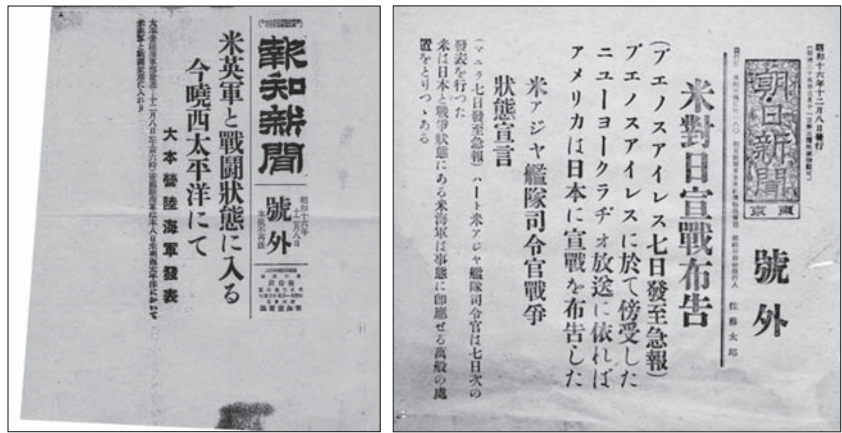 報知新聞
號外
昭和十六年
十二月八日
本紙不再錄
米英軍と戰鬪狀態に入る
今曉西太平洋にて
大本營陸海軍發表
十二月八日午前六時)帝國陸海軍は本八日未明西太平洋において
米英軍と戰鬪狀態に入れり
昭和十六年十二月八日發行
朝日新聞
東京
號外
佐藤太郎
米對日宣戰布告
(ブエノスアイレス七日發至急報)
ブエノスアイレスに於て傍受した
ニューヨークラヂオ放送に依れば
アメリカは日本に宣戰を布告した
米アジヤ艦隊司令官戰爭
狀態宣言
(マニラ七日發至急報)ハート米アジヤ艦隊司令官は七日次の
發表を行つた
米は日本と戰爭狀態にある米海軍は事態に即應せる萬般の處
置をとりつゝある